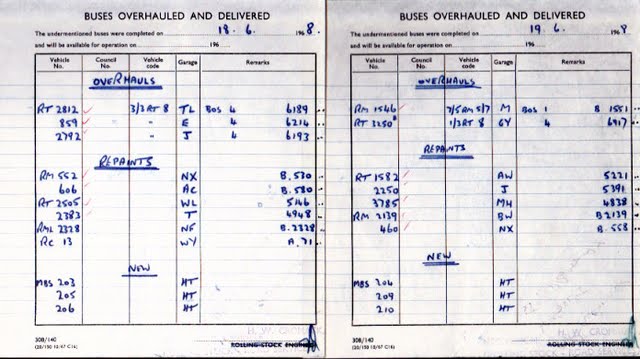 BUSES OVERHAULED AND DELIVERED
The undermentioned buses were completed on 18. 6. 196 8.
and will be available for operation on 196
Vehicle No. Council No. Vehicle code Garage Remarks
OVERHAULS
RT 2812 3/3 RT 8 TL Bos 4 6189
859 " E 4 6214
2792 " J 4 6193
REPAINTS
RM 552 NX B.530
606 AC B.580
RT 2505 WL 5146
2383 T 4948
RML 2328 NF B.2328
RC 13 WY A.71
NEW
MBS 203 HT
205 HT
206 HT
308/140
ROLLING STOCK ENGINEER
BUSES OVERHAULED AND DELIVERED
The undermentioned buses were completed on 19. 6. 196 8
and will be available for operation on 196
Vehicle No. Council No. Vehicle code Garage Remarks
OVERHAULS
RM 1546 7/5 RM 5/7 M Bos 1 B 1551
RT 3250 1/3 RT 8 GY 4 6917
REPAINTS
RT 1582 AW 5221
2250 J 5391
3785 MH 4838
RM 2139 BW B2139
460 NX B.558
NEW
MBS 204 HT
209 HT
210 HT
308/140
ROLLING STOCK ENGINEER